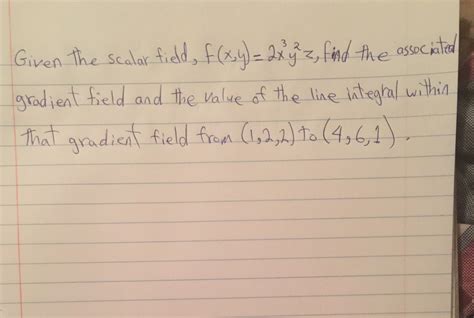 Given the scalar field, f(x,y)=2x³y²z, find the associated
gradient field and the value of the line integral within
that gradient field from (1,2,2) to (4,6,1).